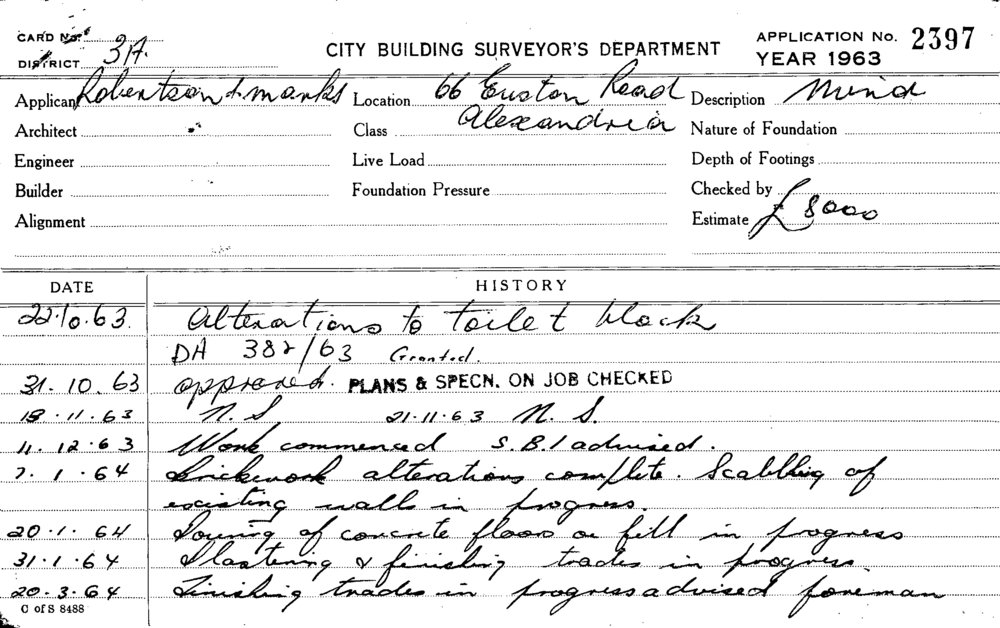 CARD No.
DISTRICT 3A.
CITY BUILDING SURVEYOR'S DEPARTMENT
APPLICATION No. 2397
YEAR 1963
Applicant Robertson & Marks
Location 66 Euston Road
Alexandria
Description Mind
Architect
Class
Nature of Foundation
Engineer
Live Load
Depth of Footings
Builder
Foundation Pressure
Checked by
Alignment
Estimate £8000
DATE HISTORY
22.10.63. Alterations to toilet block
DA 382/63 Granted.
31.10.63 approved. PLANS & SPECN. ON JOB CHECKED
18.11.63 N.S 21.11.63 N.S.
11.12.63 Work commenced S.B.I advised.
7.1.64 Brickwork alterations complete. Scabbling of
existing walls in progress.
20.1.64 Pouring of concrete floor on fill in progress
31.1.64 Plastering & finishing trades in progress.
20.3.64 Finishing trades in progress advised foreman
C of S 8488